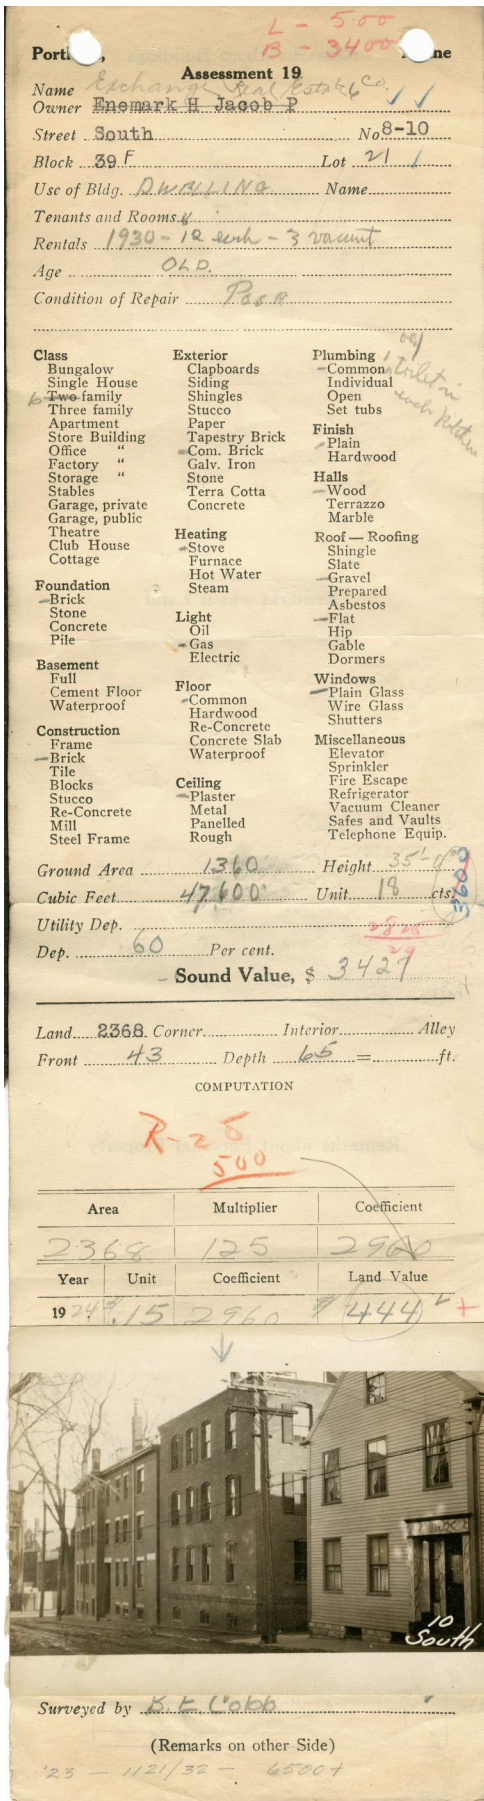 L - 5.00
B - 3400
Portl , ne
Assessment 19
Name Exchange Real Estate Co.
Owner Enemark H Jacob P
Street South No. 8-10
Block 39 F Lot 21
Use of Bldg. DWELLING Name
Tenants and Rooms
Rentals 1930 - 12 each - 3 vacant
Age OLD.
Condition of Repair Poor
Class
Bungalow
Single House
6 Two family
Three family
Apartment
Store Building
Office "
Factory "
Storage "
Stables
Garage, private
Garage, public
Theatre
Club House
Cottage
Foundation
Brick
Stone
Concrete
Pile
Basement
Full
Cement Floor
Waterproof
Construction
Frame
Brick
Tile
Blocks
Stucco
Re-Concrete
Mill
Steel Frame
Exterior
Clapboards
Siding
Shingles
Stucco
Paper
Tapestry Brick
Com. Brick
Galv. Iron
Stone
Terra Cotta
Concrete
Heating
Stove
Furnace
Hot Water
Steam
Light
Oil
Gas
Electric
Floor
Common
Hardwood
Re-Concrete
Concrete Slab
Waterproof
Ceiling
Plaster
Metal
Panelled
Rough
Plumbing
Common
Individual
Open
Set tubs
1 toilet in
each kitchen
Finish
Plain
Hardwood
Halls
Wood
Terrazzo
Marble
Roof — Roofing
Shingle
Slate
Gravel
Prepared
Asbestos
Flat
Hip
Gable
Dormers
Windows
Plain Glass
Wire Glass
Shutters
Miscellaneous
Elevator
Sprinkler
Fire Escape
Refrigerator
Vacuum Cleaner
Safes and Vaults
Telephone Equip.
Ground Area 1360 Height 35'
Cubic Feet 47600 Unit 18 cts.
Utility Dep.
Dep. 60 Per cent.
Sound Value, $ 3427
Land 2368 Corner Interior Alley
Front 43 Depth 65 = ft.
COMPUTATION
R - 25
500
Area Multiplier Coefficient
2368 125 2960
Year Unit Coefficient Land Value
1924 .15 2960 $ 444 +
10
South
Surveyed by B. E. Cobb
(Remarks on other Side)
'23 - 1121/32 - 6500+